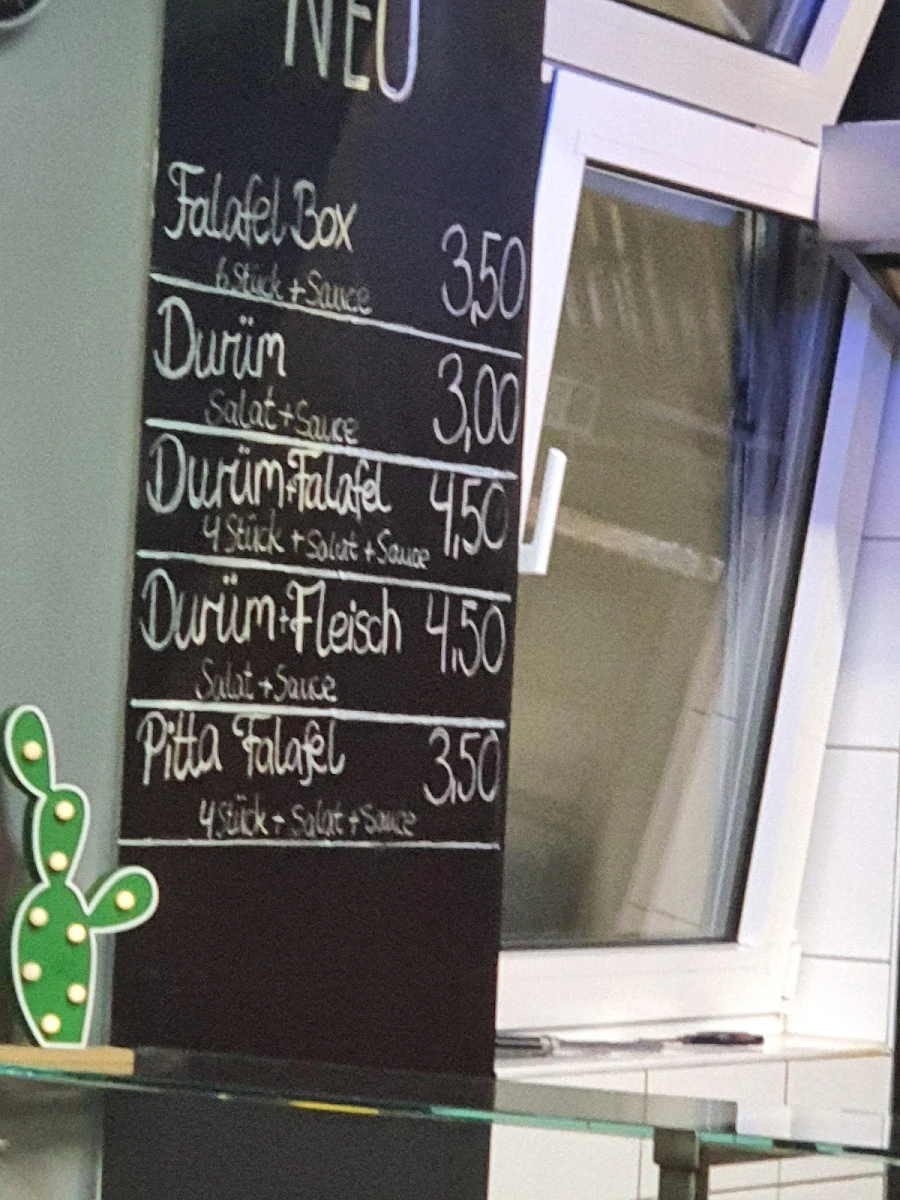 NEU
Falafel Box 3,50
6 Stück + Sauce
Durüm 3,00
Salat + Sauce
Durüm + Falafel 4,50
4 Stück + Salat + Sauce
Durüm + Fleisch 4,50
Salat + Sauce
Pitta Falafel 3,50
4 Stück + Salat + Sauce